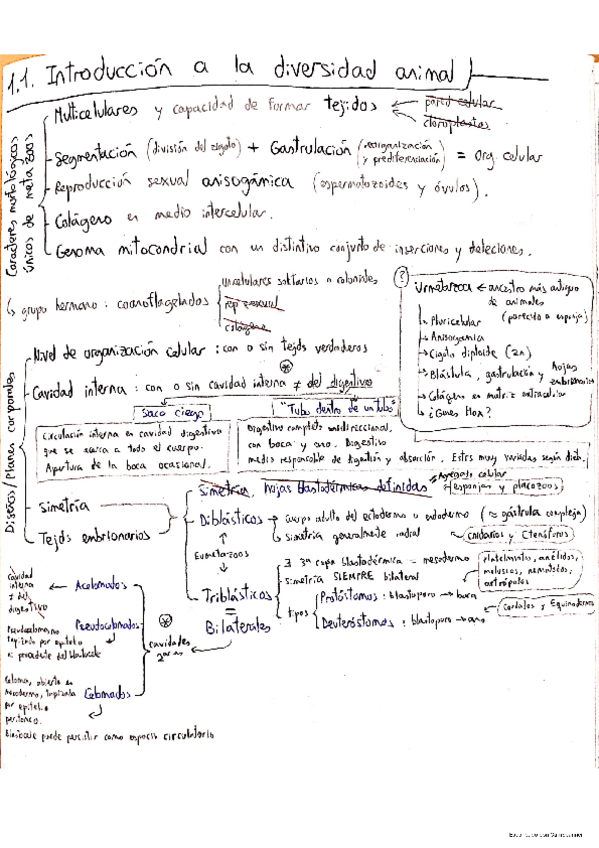 1.1. Introducción a la diversidad animal
Caracteres morfológicos únicos de metazoos
Multicelulares y capacidad de formar tejidos ← pared celular
cloroplastos
Segmentación (división del zigoto) + Gastrulación (reorganización y prediferenciación) = org. celular
Reproducción sexual anisogámica (espermatozoides y óvulos).
Colágeno en medio intercelular.
Genoma mitocondrial con un distintivo conjunto de inserciones y deleciones.
↳ grupo hermano: coanoflagelados
Unicelulares solitarios o coloniales
rep sexual
colágeno
?
Urmetazoa ← ancestro más antiguo
de animales
(parecido a esponja)
→ Pluricelular
→ Anisogamia
→ Cigoto diploide (2n)
→ Blástula, gastrulación y hojas embrionarias
→ Colágeno en matriz extracelular
→ ¿Genes Hox?
Diseños/Planes corporales
Nivel de organización celular: con o sin tejds verdaderos
Cavidad interna: con o sin cavidad interna ≠ del digestivo
Saco ciego
Circulación interna en cavidad digestiva
que se acerca a todo el cuerpo.
Apertura de la boca ocasional.
"Tubo dentro de un tubo"
Digestivo completo unidireccional
con boca y ano. Digestivo
medio responsable de digestión y absorción. Estes muy variados según dieta.
Simetría
Tejds embrionarios
Simetría, hojas blastodérmicas definidas
Agregado celular
(esponjas y placozoos)
Diblásticos → cuerpo adulto del ectodermo u endodermo (≈ gástrula compleja)
↳ simetría generalmente radial
Cnidarios y Ctenóforos
Eumetazoos
Triblásticos
=
Bilaterales
∃ 3ª capa blastodérmica = mesodermo
Simetría SIEMPRE bilateral
platelmintos, anélidos,
moluscos, nematodos,
artrópodos
tipos
Protóstomos: blastoporo → boca
Deuteróstomos: blastoporo → ano
Cordados y Equinodermos
cavidades
2arias
Cavidad
interna
≠ del
digestivo
← Acelomados
Pseudocelomados
Pseudocelomas no
tapizado por epitelio
procedente del blastocele
Celomados
Celoma, abierto en
mesodermo, tapizado
por epitelio
peritoneo.
Blastocele puede persistir como espacio circulatorio